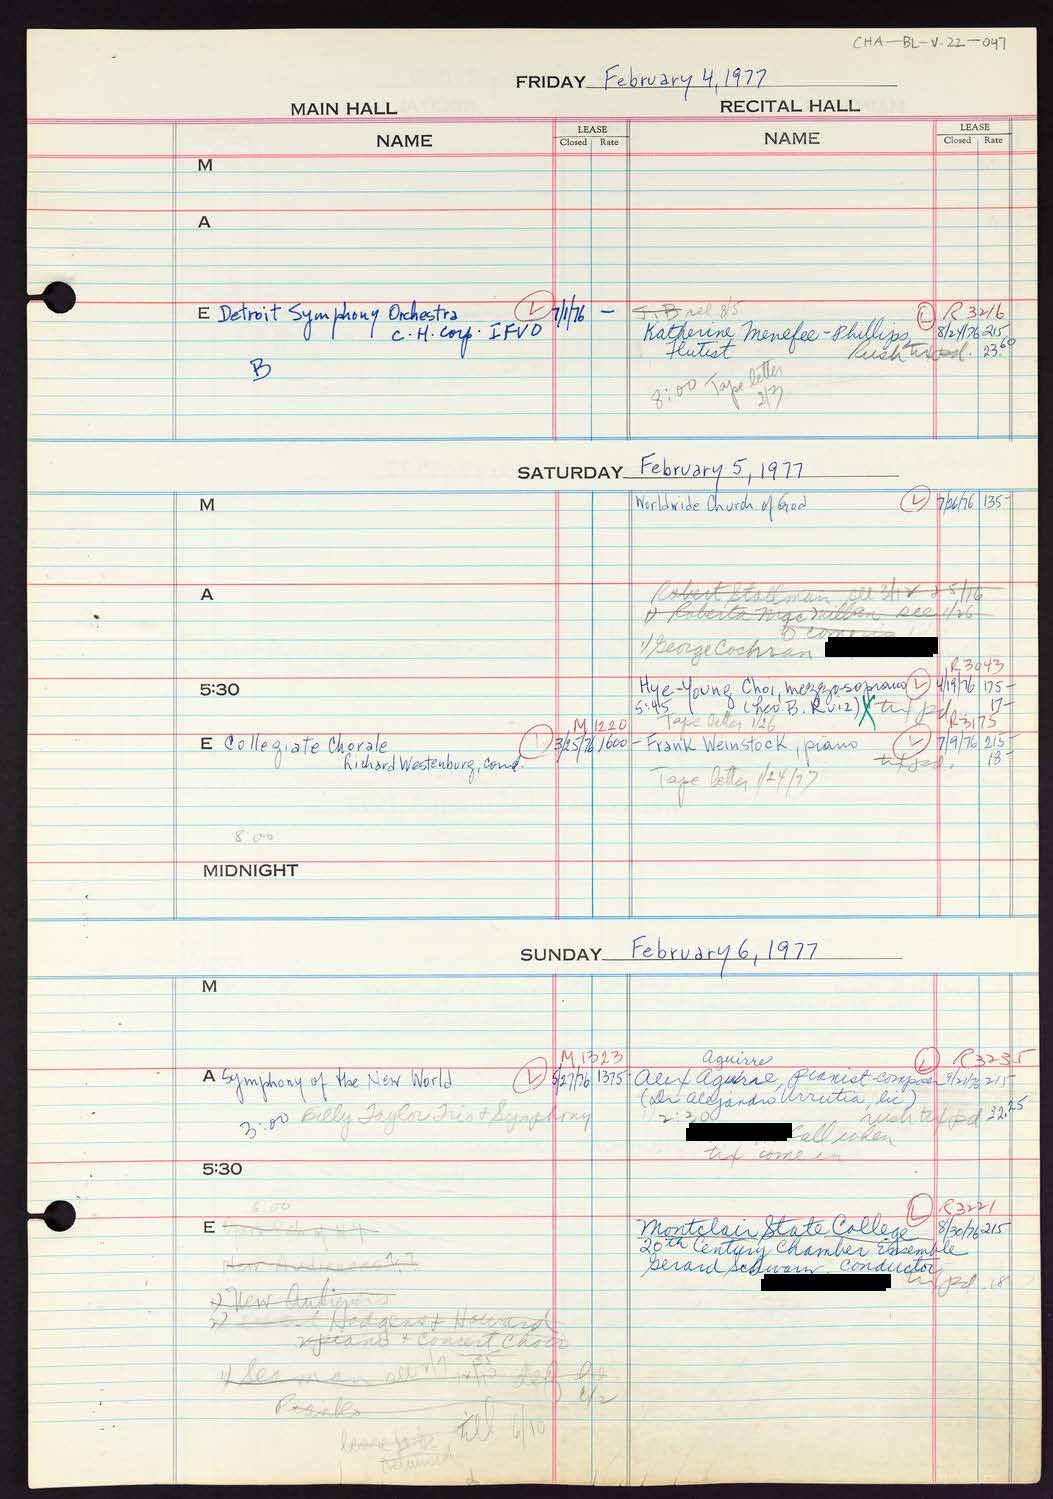 CHA-BL-V.22-047
FRIDAY February 4, 1977
MAIN HALL RECITAL HALL
NAME LEASE Closed Rate NAME LEASE Closed Rate
M
A
E Detroit Symphony Orchestra L 7/1/76 —
C.H. Corp. IFVO
B
8/5 L R 3216
Katherine Menefee-Phillips, 8/24/76 215
flutist Rush tix pd. 23.60
8:00 Tape letter
2/3
SATURDAY February 5, 1977
M Worldwide Church of God L 7/26/76 135-
A Robert Stallman see 3/1
1) Roberta MacMillan see 1/26
1) George Cochran
R3043
5:30 Hye-Young Choi, mezzo-soprano L 4/19/76 175-
5:45 (Theo B. Ruiz) X tix pd. 17-
Tape letter 1/26 R3175
M 1220
E Collegiate Chorale 3/25/76 1600- Frank Weinstock, piano L 7/9/76 215-
Richard Westenburg, cond. tix pd. 18-
Tape letter 1/24/77
8:00
MIDNIGHT
SUNDAY February 6, 1977
M
M 1323 Aguirre L R3235
A Symphony of the New World L 5/27/76 1375- Alex Aguirre, pianist-composer 9/21/76 215-
(Dr. Alejandro Urrutia, lic)
3:00 Billy Taylor Trio & Symphony 2:30 rush tix pd 22.25
Call when
tix come in
5:30
L R3221
E Montclair State College 8/30/76 215-
20th Century Chamber Ensemble
Gerard Schwarz, conductor
tix pd. 18
New Audiences 1,2
2) New Audiences
2) Hodgens & Howard
2 piano & Concert Choir
1) Seaman see
till 6/10
returned